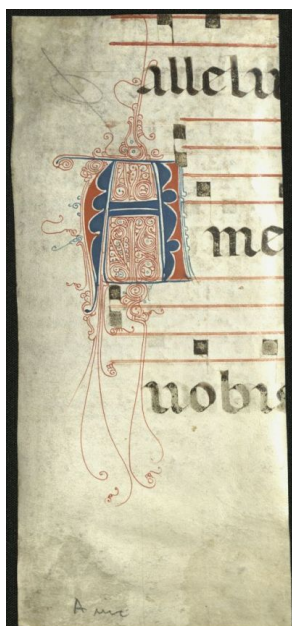 allelu
Ame
nobis
A me